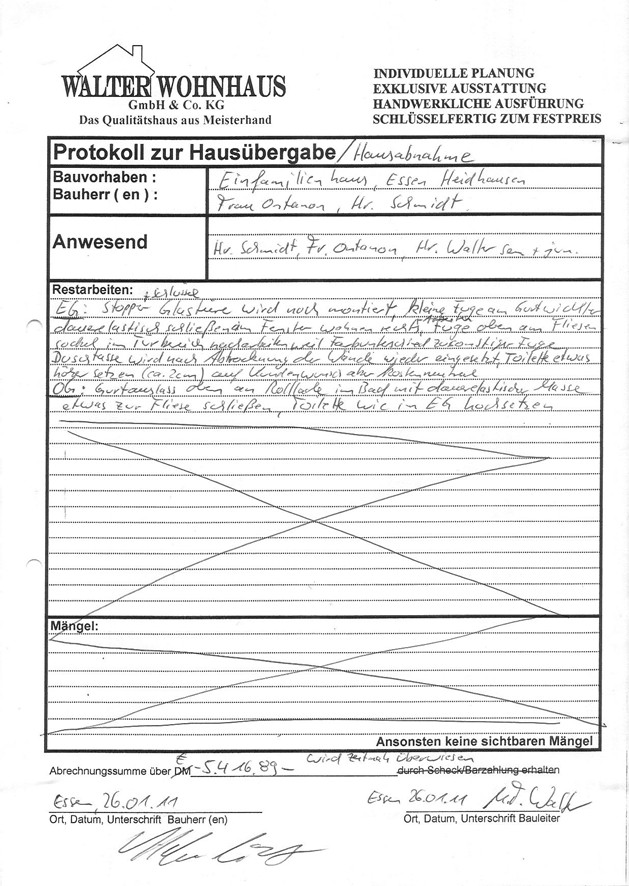 WALTER WOHNHAUS
GmbH & Co. KG
Das Qualitätshaus aus Meisterhand
INDIVIDUELLE PLANUNG
EXKLUSIVE AUSSTATTUNG
HANDWERKLICHE AUSFÜHRUNG
SCHLÜSSELFERTIG ZUM FESTPREIS
Protokoll zur Hausübergabe / Hausabnahme
Bauvorhaben : Einfamilienhaus, Essen Heidhausen
Bauherr ( en ) : Frau Ontanon, Hr. Schmidt
Anwesend
Hr. Schmidt, Fr. Ontanon, Hr. Walter sen + jun.
Restarbeiten:
EG: Stopper Glastüre wird noch montiert, kleine Fuge am Gurtwickler
dauerelastisch schließen am Fenster wohnen rechts, Fuge oben am Fliesen
sockel im Türbereich nacharbeiten weil
Duschtasse wird nach Abtrocknung der Wände wieder eingesetzt, Toilette etwas
höher setzen (ca. 2cm) auf Kundenwunsch aber Kostenneutral
OG: Gurtauslass oben an Rolllade im Bad mit dauerelastischer Masse
etwas zur Fliese schließen, Toilette wie in EG hochsetzen
Mängel:
Ansonsten keine sichtbaren Mängel
wird zeitnah überwiesen
Abrechnungssumme über DM € -5.416,89- durch Scheck/Barzahlung erhalten
Essen, 26.01.11
Ort, Datum, Unterschrift Bauherr (en)
Essen 26.01.11
Ort, Datum, Unterschrift Bauleiter